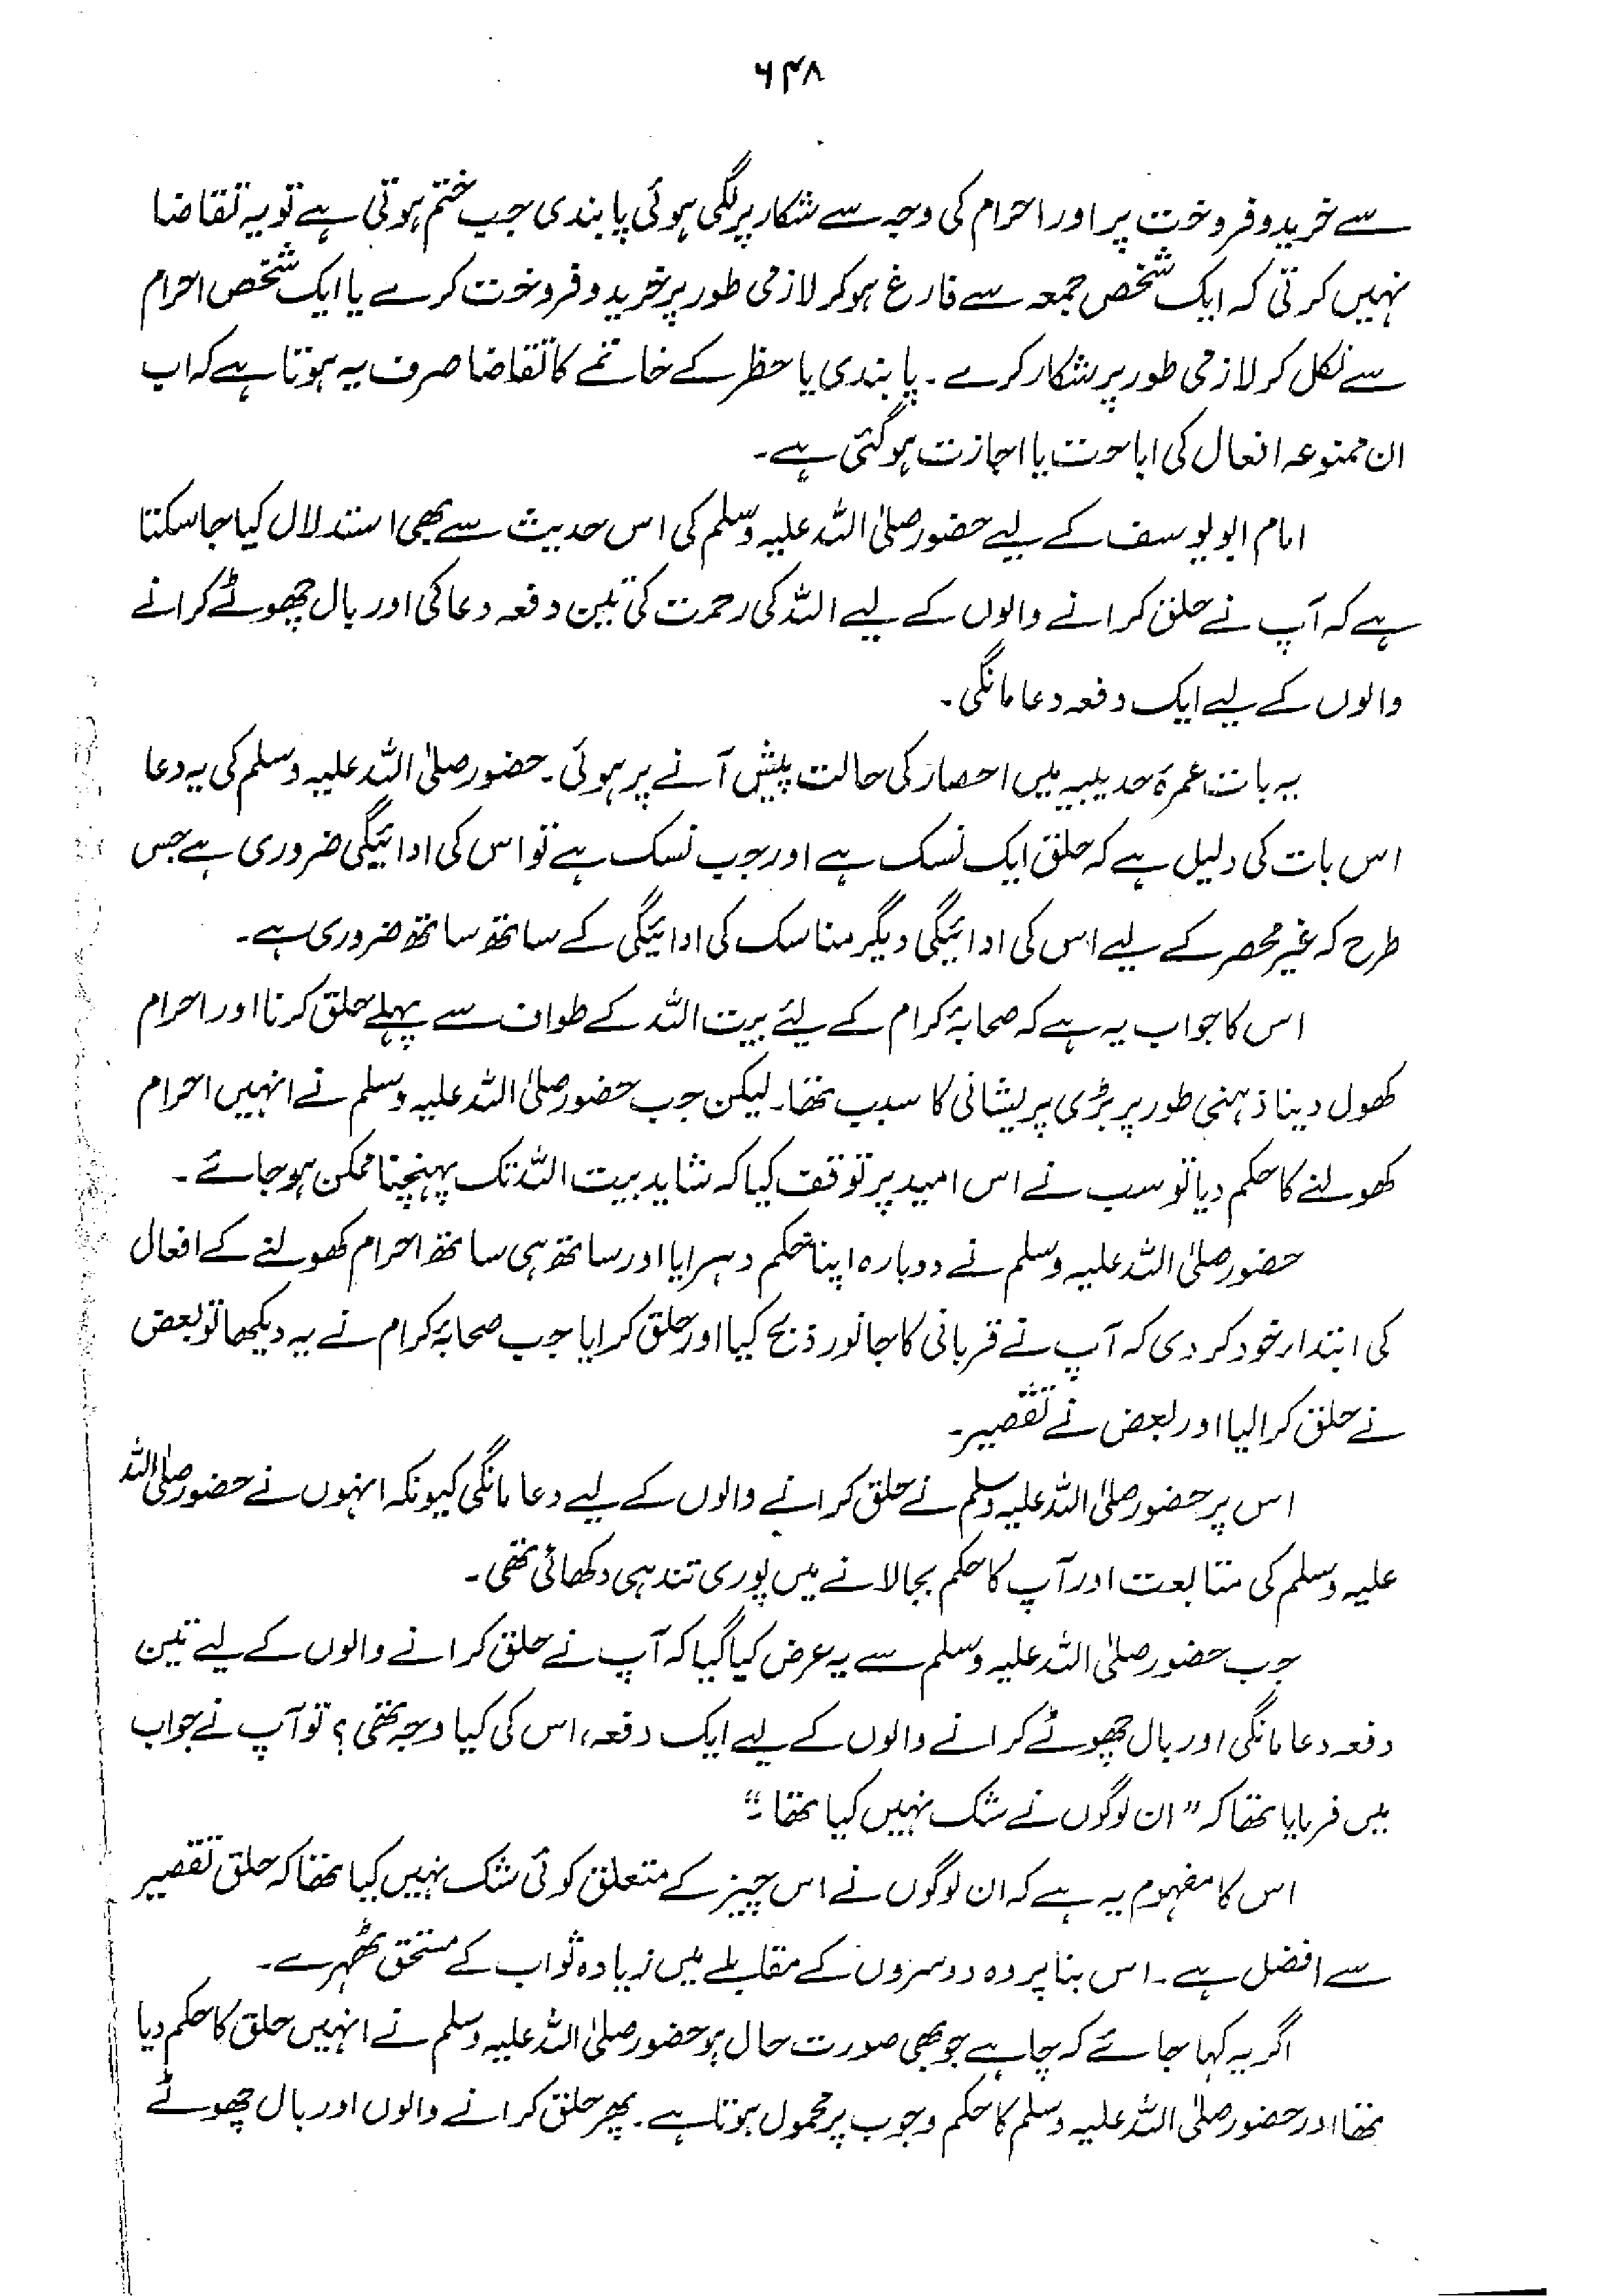 ۶۴۸
سے خرید و فروخت پر اور احرام کی وجہ سے شکار پر لگی ہوئی پابندی جب ختم ہوتی ہے تو یہ تقاضا
نہیں کرتی کہ ایک شخص جمعہ سے فارغ ہو کر لازمی طور پر خرید و فروخت کرے یا ایک شخص احرام
سے نکل کر لازمی طور پر شکار کرے۔ پابندی یا حظر کے خاتمے کا تقاضا صرف یہ ہوتا ہے کہ اب
ان ممنوعہ افعال کی اباحت یا اجازت ہو گئی ہے۔
امام ابو یوسف کے لیے حضور صلی اللہ علیہ وسلم کی اس حدیث سے بھی استدلال کیا جا سکتا
ہے کہ آپ نے حلق کرانے والوں کے لیے اللہ کی رحمت کی تین دفعہ دعا کی اور بال چھوٹے کرانے
والوں کے لیے ایک دفعہ دعا مانگی۔
یہ بات عمرۂ حدیبیہ میں احصار کی حالت پیش آنے پر ہوئی۔ حضور صلی اللہ علیہ وسلم کی یہ دعا
اس بات کی دلیل ہے کہ حلق ایک نسک ہے اور جب نسک ہے تو اس کی ادائیگی ضروری ہے جس
طرح کہ غیر محصر کے لیے اس کی ادائیگی دیگر مناسک کی ادائیگی کے ساتھ ساتھ ضروری ہے۔
اس کا جواب یہ ہے کہ صحابۂ کرام کے لیئے بیت اللہ کے طواف سے پہلے حلق کرنا اور احرام
کھول دینا ذہنی طور پر بڑی پریشانی کا سبب تھا۔ لیکن جب حضور صلی اللہ علیہ وسلم نے انہیں احرام
کھولنے کا حکم دیا تو سب نے اس امید پر توقف کیا کہ شاید بیت اللہ تک پہنچنا ممکن ہو جائے۔
حضور صلی اللہ علیہ وسلم نے دوبارہ اپنا حکم دہرایا اور ساتھ ہی ساتھ احرام کھولنے کے افعال
کی ابتدار خود کر دی کہ آپ نے قربانی کا جانور ذبح کیا اور حلق کرایا جب صحابۂ کرام نے یہ دیکھا تو بعض
نے حلق کرا لیا اور بعض نے تقصیر۔
اس پر حضور صلی اللہ علیہ وسلم نے حلق کرانے والوں کے لیے دعا مانگی کیونکہ انہوں نے حضور صلی اللہ
علیہ وسلم کی متابعت اور آپ کا حکم بجا لانے میں پوری تندہی دکھائی تھی۔
جب حضور صلی اللہ علیہ وسلم سے یہ عرض کیا گیا کہ آپ نے حلق کرانے والوں کے لیے تین
دفعہ دعا مانگی اور بال چھوٹے کرانے والوں کے لیے ایک دفعہ، اس کی کیا وجہ تھی؟ تو آپ نے جواب
میں فرمایا تھا کہ ”ان لوگوں نے شک نہیں کیا تھا۔“
اس کا مفہوم یہ ہے کہ ان لوگوں نے اس چیز کے متعلق کوئی شک نہیں کیا تھا کہ حلق تقصیر
سے افضل ہے۔ اس بنا پر وہ دوسروں کے مقابلے میں زیادہ ثواب کے مستحق ٹھہرے۔
اگر یہ کہا جائے کہ چاہے جو بھی صورت حال ہو حضور صلی اللہ علیہ وسلم نے انہیں حلق کا حکم دیا
تھا اور حضور صلی اللہ علیہ وسلم کا حکم وجوب پر محمول ہوتا ہے۔ پھر حلق کرانے والوں اور بال چھوٹے